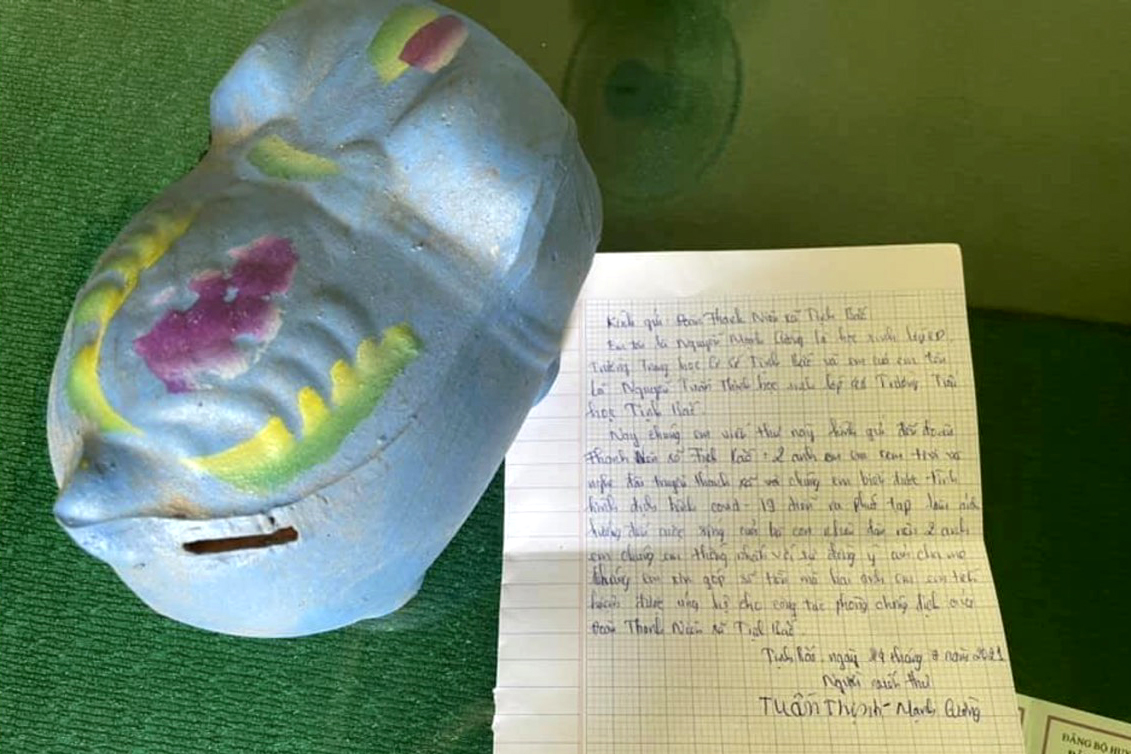 Kính gửi: Đoàn Thanh Niên xã Tịnh Bắc
Em tên là Nguyễn Mạnh Cường là học sinh lớp
Trường Trung học Cơ sở Tịnh Bắc và em của em tên
là Nguyễn Tuấn Thịnh học sinh lớp Trường Tiểu
học Tịnh Bắc.
Nay chúng em viết thư này kính gửi đến đoàn
Thanh Niên xã Tịnh Bắc: 2 anh em em xem tivi và
nghe đài truyền thanh xã và chúng em biết được tình
hình dịch bệnh covid-19 diễn ra phức tạp làm ảnh
hưởng đến cuộc sống của bà con nên 2 anh
em chúng em thống nhất với sự đồng ý của cha mẹ
chúng em xin góp số tiền mà hai anh em em tiết
kiệm được ủng hộ cho công tác phòng chống dịch của
Đoàn Thanh Niên xã Tịnh Bắc.
Tịnh Bắc, ngày tháng năm 2021
Người viết thư
Tuấn Thịnh - Mạnh Cường
ĐẢNG BỘ